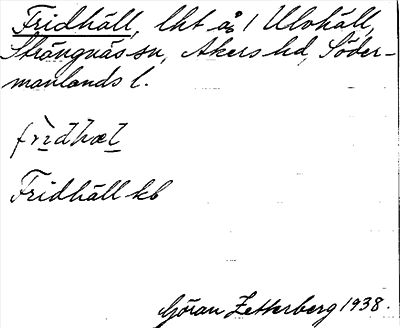 Fridhäll, lht å 1 Ulvhäll,
Strängnäs sn, Åkers hd, Söder-
manlands l.
frìdhæl
Fridhäll kb
Göran Zetterberg 1938.